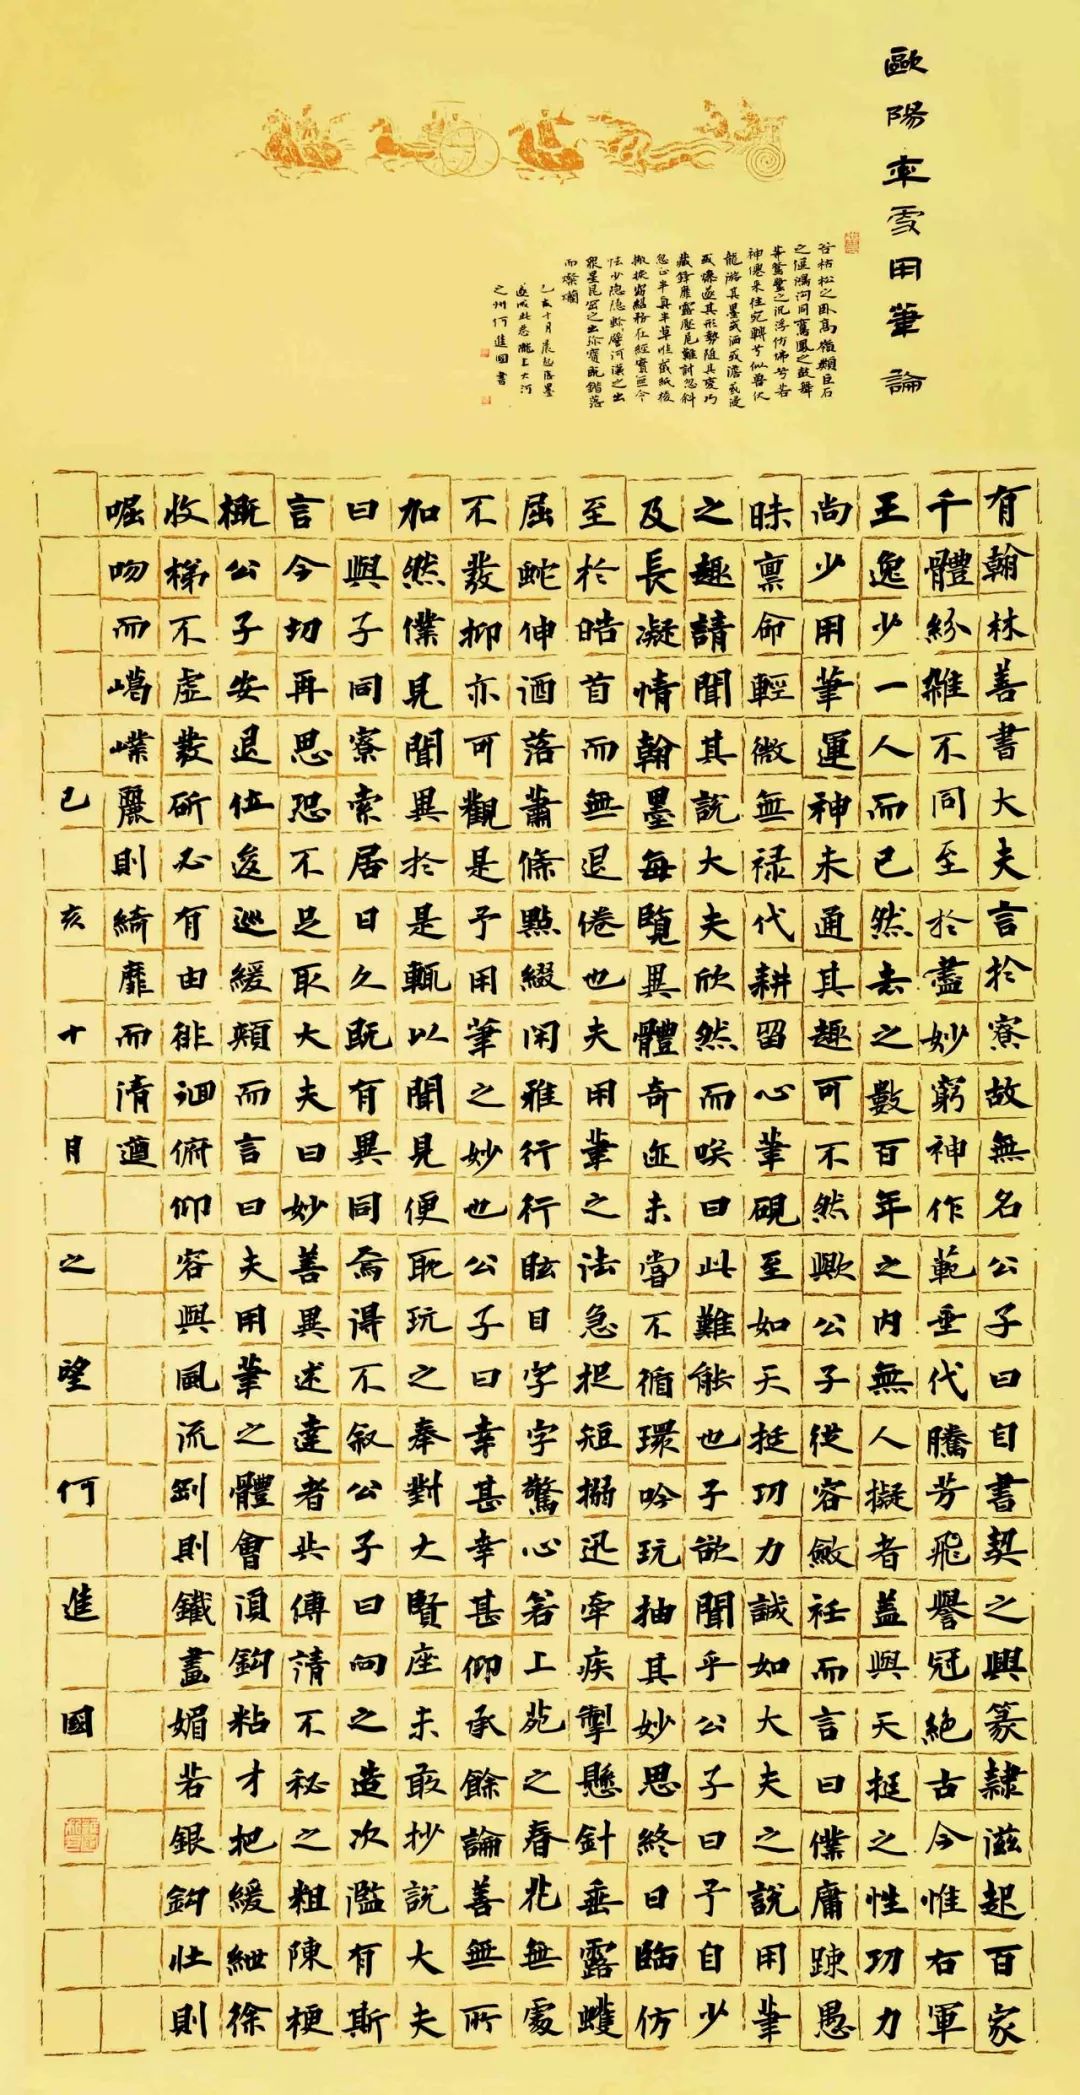 歐陽率更用筆論
有翰林善書大夫言於寮故無名公子曰自書契之興篆隸滋起百家
千體紛雜不同至於盡妙窮神作範垂代騰芳飛譽冠絕古今惟右軍
王逸少一人而已然去之數百年之內無人擬者蓋與天挺之性功力
尚少用筆運神未通其趣可不然歟公子從容斂衽而言曰僕庸疎愚
昧禀命輕微無禄代耕留心筆硯至如天挺功力誠如大夫之說用筆
之趣請聞其說大夫欣然而咲曰此難能也子欲聞乎公子曰予自少
及長凝情翰墨每覽異體奇迹未嘗不循環吟玩抽其妙思終日臨仿
至於皓首而無退倦也夫用筆之法急捉短搦迅牽疾掣懸針垂露蠖
屈蛇伸洒落蕭條點綴閑雅行行眩目字字驚心若上苑之春花無處
不發抑亦可觀是予用筆之妙也公子曰幸甚幸甚仰承餘論善無所
加然僕見聞異於是輒以聞見便耽玩之奉對大賢座未敢抄說大夫
曰與子同寮索居日久既有異同焉得不叙公子曰向之造次濫有斯
言今切再思恐不足取大夫曰妙善異述達者共傳請不秘之粗陳梗
概公子安退位逡巡緩頰而言曰夫用筆之體會須鈎粘才把緩紲徐
收梯不虛發斫必有由徘徊俯仰容與風流剛則鐵畫媚若銀鈎壯則
崛吻而嶱嶫麗則綺靡而清遒
己亥十月之望何進國
谷枯松之卧高嶺類巨石
之偃鴻溝同鸞鳳之鼓舞
等鴛鷺之沉浮仿佛兮若
神僊来往宛轉兮似兽伏
龍游其墨或洒或澹或浸
或燥遂其形勢隨其变巧
藏鋒靡露壓尾難討忽斜
忽正半真半草惟截紙棱
撇捩窈紹務在經實無令
怯少隱隱軫譬河漢之出
衆星昆岡之出珍寶既錯落
而燦爛
己亥十月晨起落墨
遂成此卷隴上大河
之州何進國書